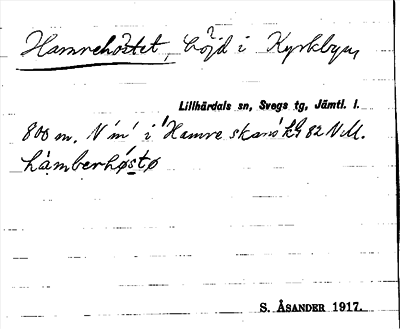 Hamrehöstet, höjd i Kyrkbyn,
Lillhärdals sn, Svegs tg, Jämtl. l.
800 m. N m i Hamre 82 N.V.
hàmberhǿstø
S. ÅSANDER 1917.